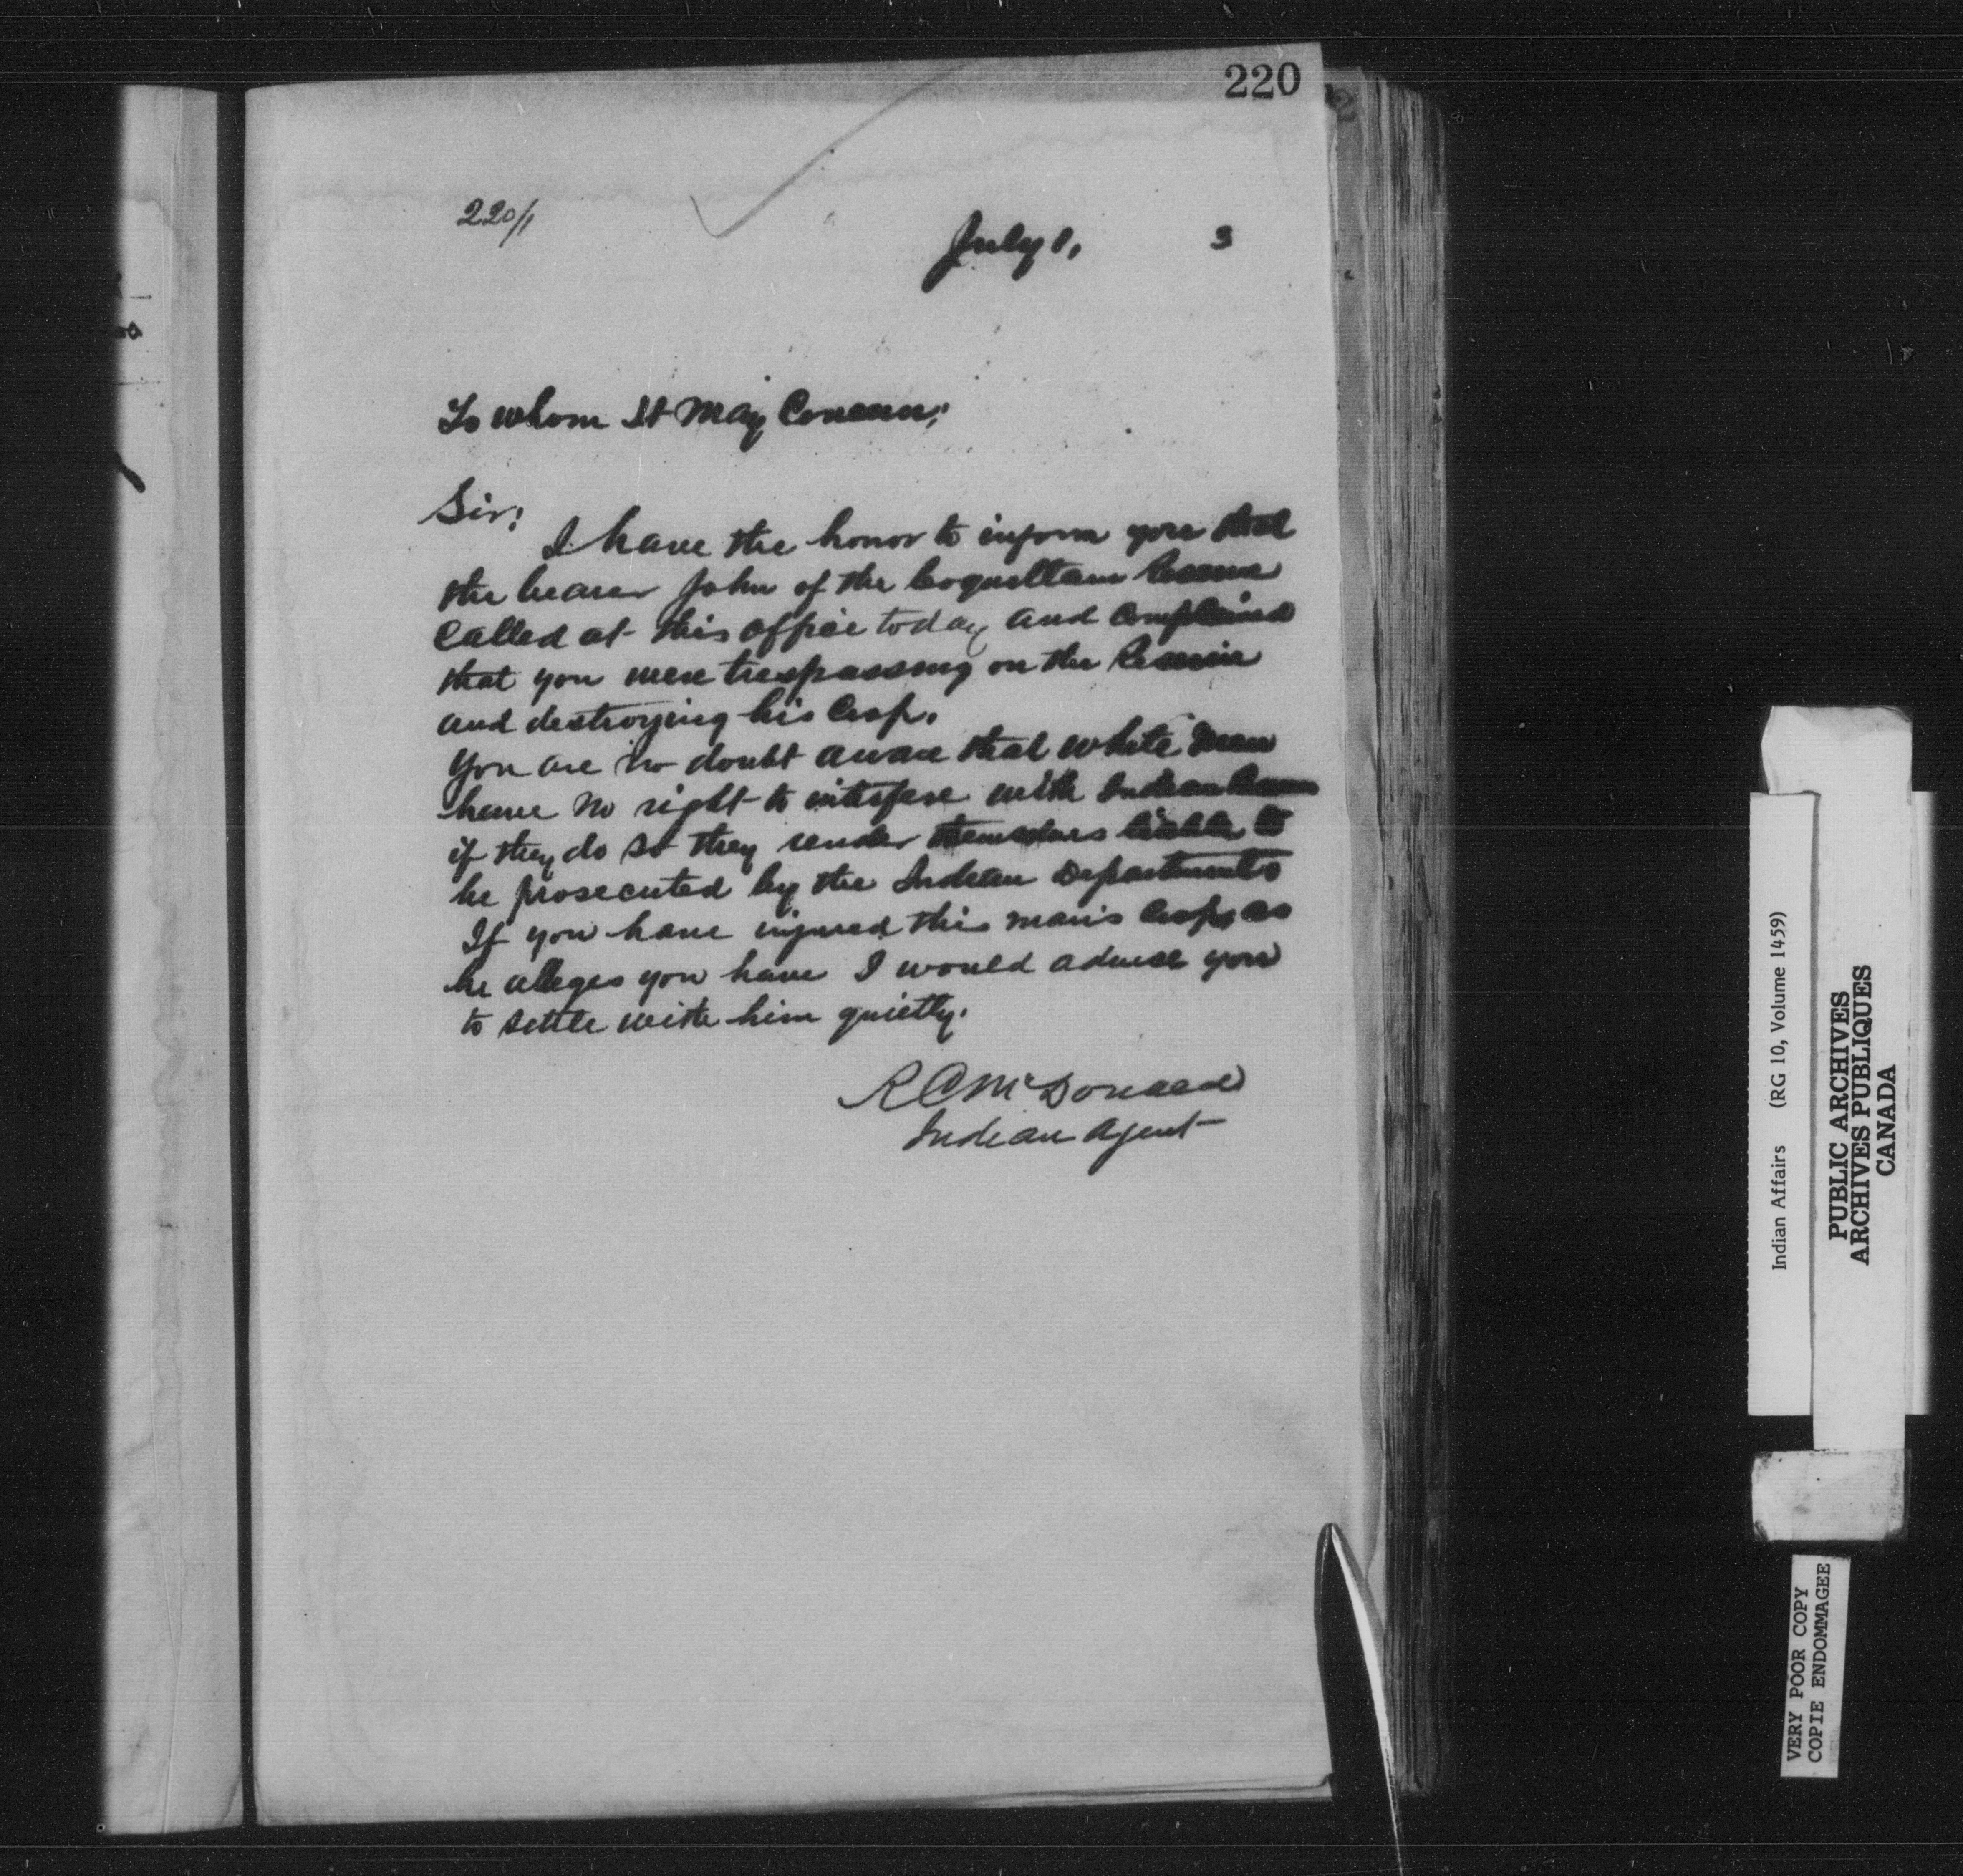 220
220/1
July 1, 3
To whom It May Concern;
Sir;
I have the honor to inform you that
the bearer John of the Coquitlam Reserve
Called at this office today and complained
that you were trespassing on the Reserve
and destroying his Crop.
You are no doubt aware that white men
have no right to interfere with Indian
if they do so they render themselves liable to
be prosecuted by the Indian Department
If you have injured this man's Crop, as
he alleges you have I would advise you
to settle with him quietly.
R C McDonald
Indian Agent
Indian Affairs (RG 10, Volume 1459)
PUBLIC ARCHIVES
ARCHIVES PUBLIQUES
CANADA
VERY POOR COPY
COPIE ENDOMMAGEE